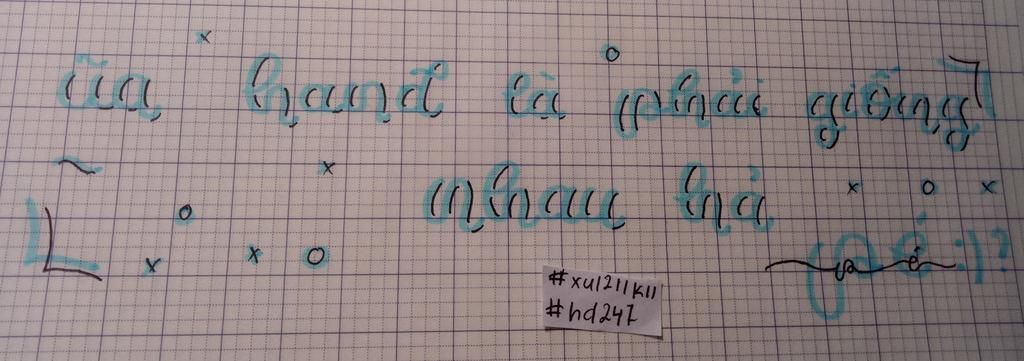 ũa hand là phải giống
nhau hả
pé :)?
#xu1211k11
#hd247